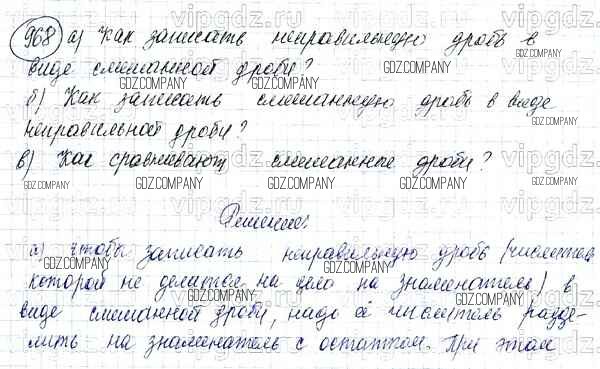 968 а) Как записать неправильную дробь в
виде смешанной дроби?
б) Как записать смешанную дробь в виде
неправильной дроби?
в) Как сравнивают смешанные дроби?
Решение.
а) чтобы записать неправильную дробь (числитель
которой не делится на цело на знаменатель) в
виде смешанной дроби, надо её числитель разде-
лить на знаменатель с остатком. При этом